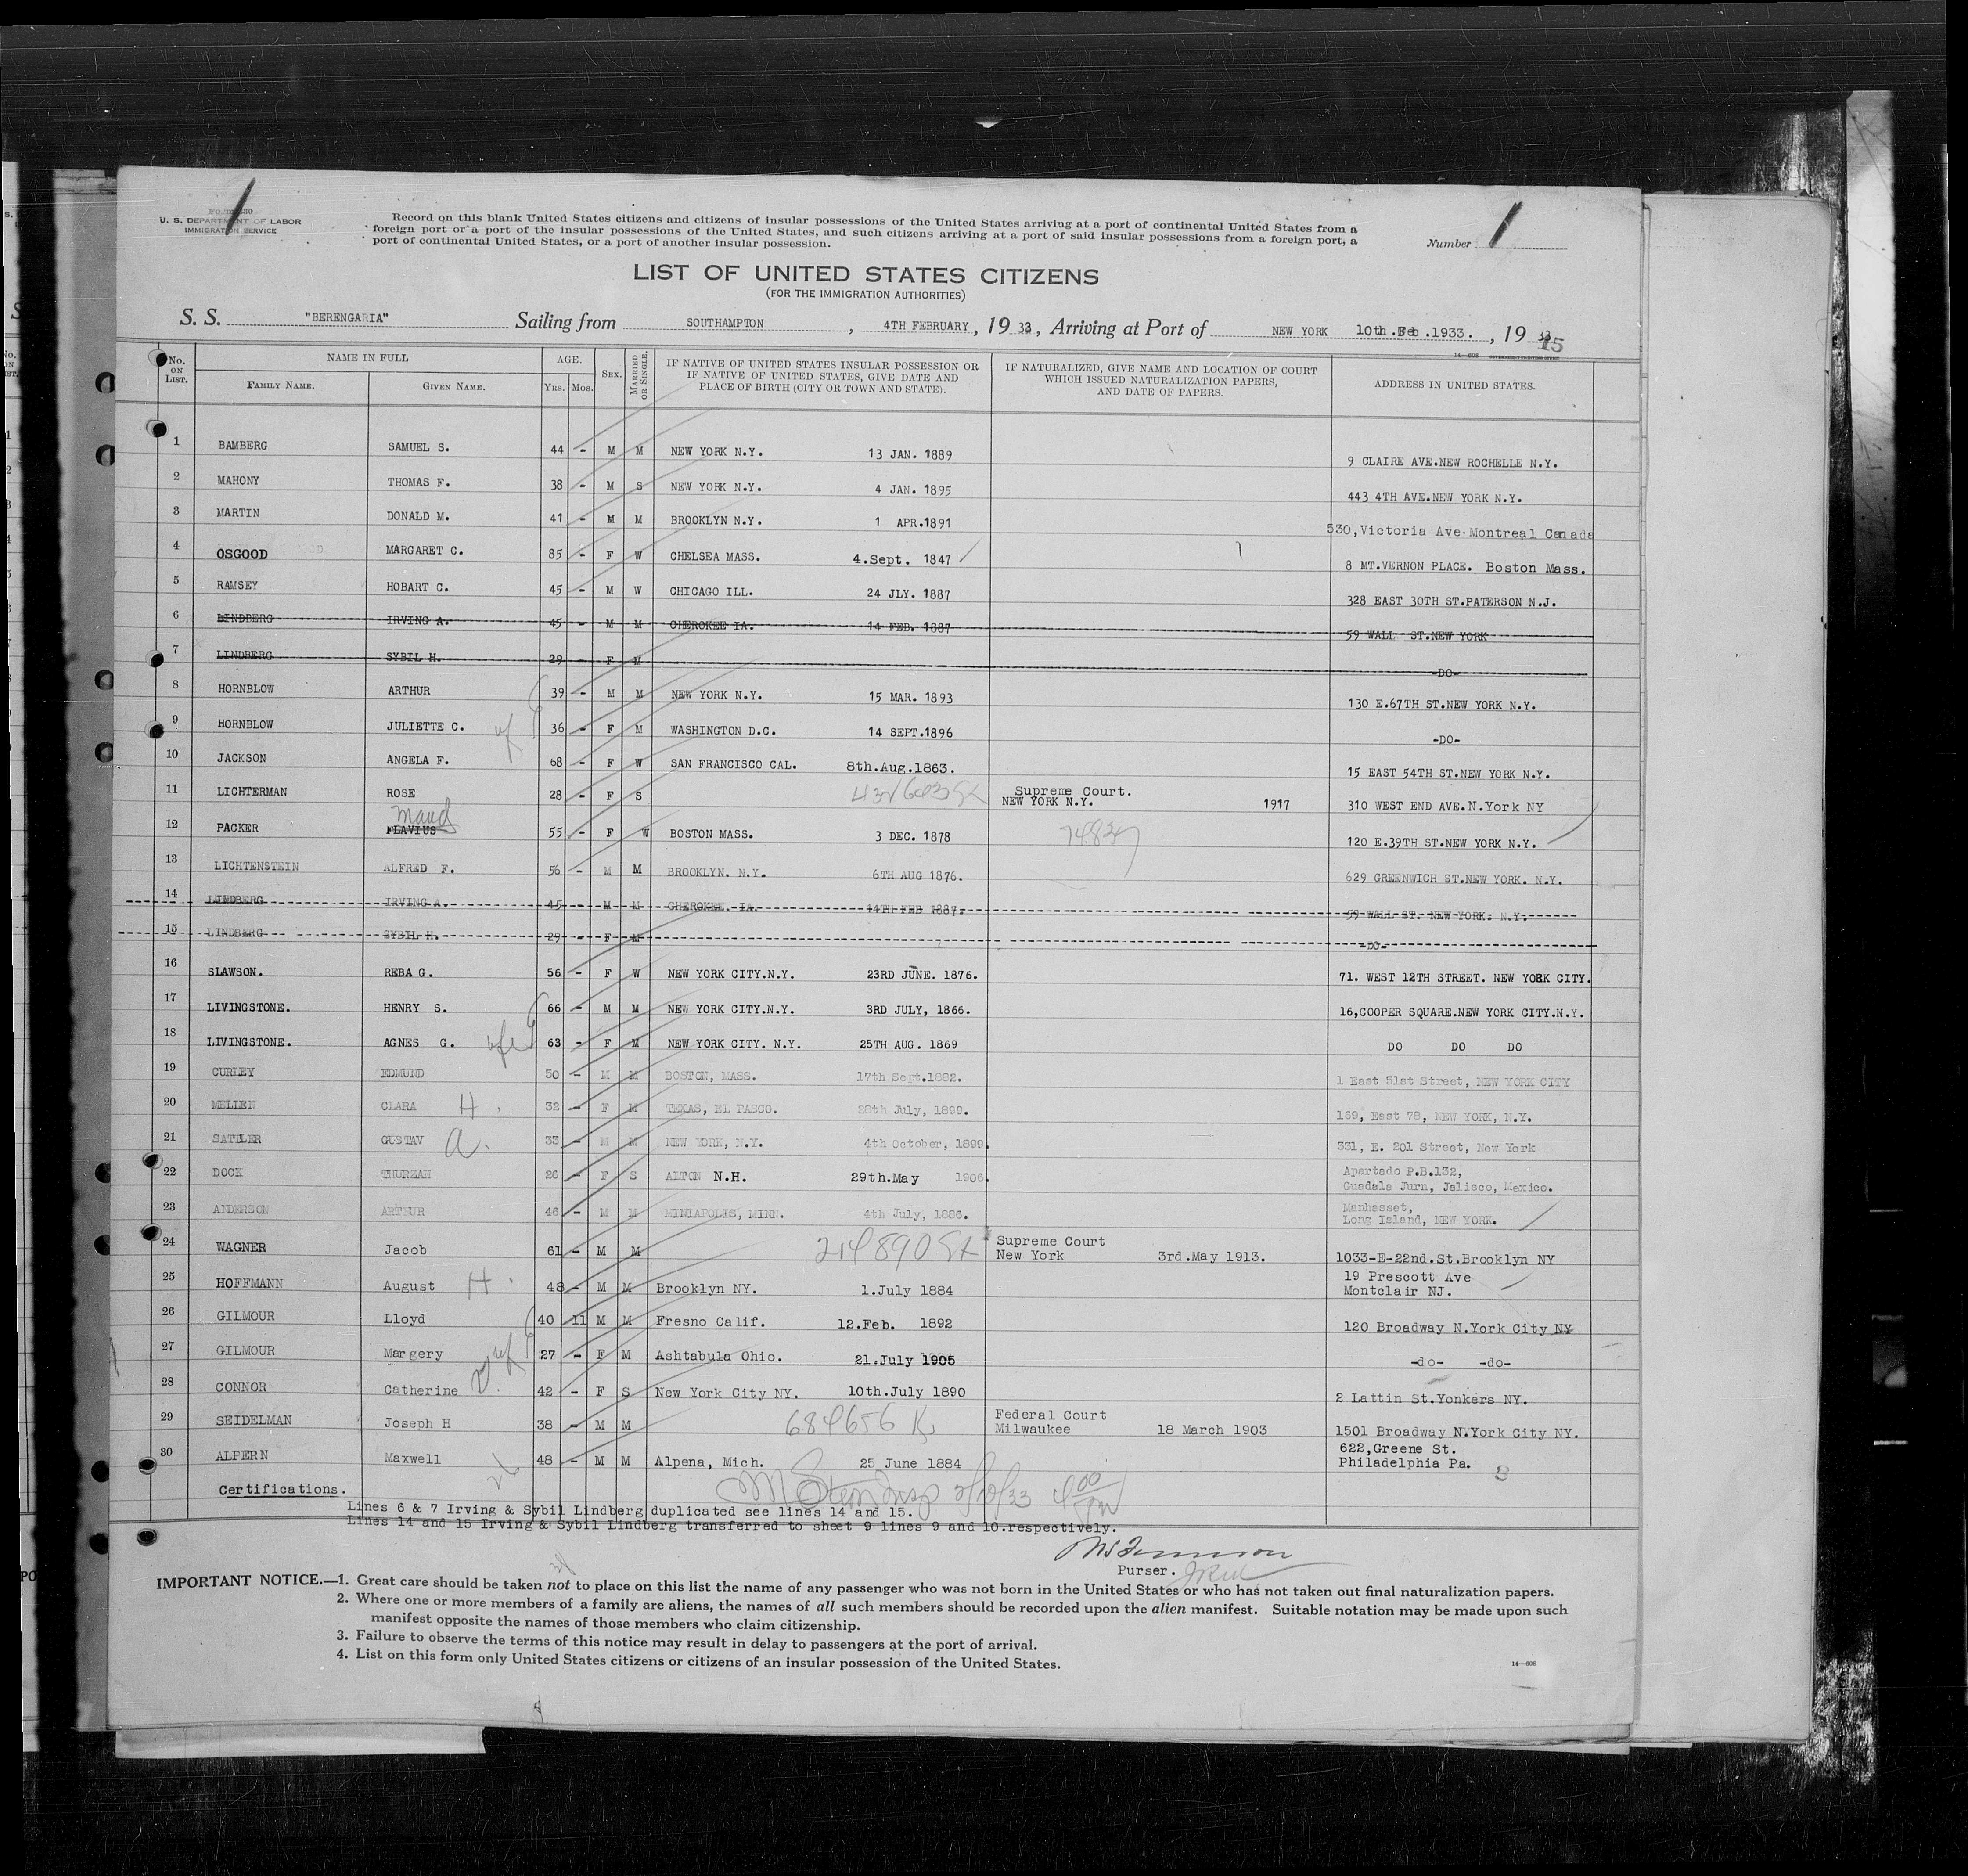 Form 630
U. S. DEPARTMENT OF LABOR
IMMIGRATION SERVICE
1
Record on this blank United States citizens and citizens of insular possessions of the United States arriving at a port of continental United States from a
foreign port or a port of the insular possessions of the United States, and such citizens arriving at a port of said insular possessions from a foreign port, a
port of continental United States, or a port of another insular possession.
Number 1
LIST OF UNITED STATES CITIZENS
(FOR THE IMMIGRATION AUTHORITIES)
S. S. "BERENGARIA" Sailing from SOUTHAMPTON, 4TH FEBRUARY, 1933, Arriving at Port of NEW YORK 10th.Feb.1933., 1933
15
No. ON LIST. NAME IN FULL AGE. SEX. MARRIED OR SINGLE. IF NATIVE OF UNITED STATES INSULAR POSSESSION OR IF NATIVE OF UNITED STATES, GIVE DATE AND PLACE OF BIRTH (CITY OR TOWN AND STATE). IF NATURALIZED, GIVE NAME AND LOCATION OF COURT WHICH ISSUED NATURALIZATION PAPERS, AND DATE OF PAPERS. ADDRESS IN UNITED STATES.
FAMILY NAME. GIVEN NAME. YRS. MOS.
1 BAMBERG SAMUEL S. 44 - M M NEW YORK N.Y. 13 JAN. 1889 9 CLAIRE AVE.NEW ROCHELLE N.Y.
2 MAHONY THOMAS F. 38 - M S NEW YORK N.Y. 4 JAN. 1895 443 4TH AVE.NEW YORK N.Y.
3 MARTIN DONALD M. 41 - M M BROOKLYN N.Y. 1 APR.1891 530,Victoria Ave.Montreal Canada
4 OSGOOD MARGARET C. 85 - F W CHELSEA MASS. 4.Sept. 1847 8 MT.VERNON PLACE. Boston Mass.
5 RAMSEY HOBART C. 45 - M W CHICAGO ILL. 24 JLY. 1887 328 EAST 30TH ST.PATERSON N.J.
6 LINDBERG IRVING A. 45 - M M CHEROKEE IA. 14 FEB. 1887 59 WALL ST.NEW YORK
7 LINDBERG SYBIL H. 29 - F M -DO-
8 HORNBLOW ARTHUR 39 - M M NEW YORK N.Y. 15 MAR. 1893 130 E.67TH ST.NEW YORK N.Y.
9 HORNBLOW JULIETTE C. wf 36 - F M WASHINGTON D.C. 14 SEPT.1896 -DO-
10 JACKSON ANGELA F. 68 - F W SAN FRANCISCO CAL. 8th.Aug.1863. 15 EAST 54TH ST.NEW YORK N.Y.
11 LICHTERMAN ROSE 28 - F S Supreme Court. NEW YORK N.Y. 1917 310 WEST END AVE.N.York NY
12 PACKER FLAVIUS Maud 55 - F W BOSTON MASS. 3 DEC. 1878 120 E.39TH ST.NEW YORK N.Y.
13 LICHTENSTEIN ALFRED F. 56 - M M BROOKLYN. N.Y. 6TH AUG 1876. 629 GREENWICH ST.NEW YORK. N.Y.
14 LINDBERG IRVING A. 45 - M M CHEROKEE. IA. 14TH FEB 1887. 59 WALL ST. NEW YORK. N.Y.
15 LINDBERG SYBIL H. 29 - F M -DO-
16 SLAWSON. REBA G. 56 - F W NEW YORK CITY.N.Y. 23RD JUNE. 1876. 71. WEST 12TH STREET. NEW YORK CITY.
17 LIVINGSTONE. HENRY S. 66 - M M NEW YORK CITY.N.Y. 3RD JULY, 1866. 16,COOPER SQUARE.NEW YORK CITY.N.Y.
18 LIVINGSTONE. AGNES G. wfe 63 - F M NEW YORK CITY. N.Y. 25TH AUG. 1869 DO DO DO
19 CURLEY EDMUND 50 - M M BOSTON, MASS. 17th Sept.1882. 1 East 51st Street, NEW YORK CITY
20 MELLEN CLARA H. 32 - F M TEXAS, EL PASCO. 28th July, 1899. 169, East 78, NEW YORK, N.Y.
21 SATTLER GUSTAV A. 33 - M M NEW YORK, N.Y. 4th October, 1899. 331, E. 201 Street, New York
22 DOCK THURZAH 26 - F S ALTON N.H. 29th.May 1906. Apartado P.B.132, Guadala Jurn, Jalisco, Mexico.
23 ANDERSON ARTHUR 46 - M M MINIAPOLIS, MINN. 4th July, 1886. Manhasset, Long Island, NEW YORK.
24 WAGNER Jacob 61 - M M 214890 Supreme Court New York 3rd.May 1913. 1033-E-22nd.St.Brooklyn NY
25 HOFFMANN August H. 48 - M M Brooklyn NY. 1.July 1884 19 Prescott Ave Montclair NJ.
26 GILMOUR Lloyd 40 11 M M Fresno Calif. 12.Feb. 1892 120 Broadway N.York City NY
27 GILMOUR Margery wf 27 - F M Ashtabula Ohio. 21.July 1905 -do- -do-
28 CONNOR Catherine V. 42 - F S New York City NY. 10th.July 1890 2 Lattin St.Yonkers NY.
29 SEIDELMAN Joseph H 38 - M M 684656 K Federal Court Milwaukee 18 March 1903 1501 Broadway N.York City NY.
30 ALPERN Maxwell 48 - M M Alpena, Mich. 25 June 1884 622,Greene St. Philadelphia Pa.
Certifications.
Lines 6 & 7 Irving & Sybil Lindberg duplicated see lines 14 and 15.
Lines 14 and 15 Irving & Sybil Lindberg transferred to sheet 9 lines 9 and 10.respectively.
Purser.
IMPORTANT NOTICE.—1. Great care should be taken not to place on this list the name of any passenger who was not born in the United States or who has not taken out final naturalization papers.
2. Where one or more members of a family are aliens, the names of all such members should be recorded upon the alien manifest. Suitable notation may be made upon such
manifest opposite the names of those members who claim citizenship.
3. Failure to observe the terms of this notice may result in delay to passengers at the port of arrival.
4. List on this form only United States citizens or citizens of an insular possession of the United States.
14—608